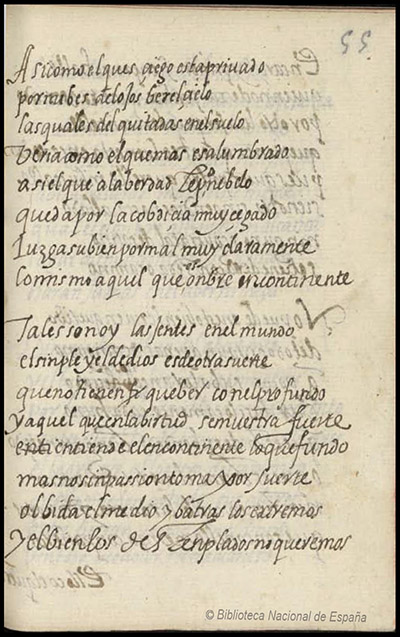 55
Asi como el ques ciego esta privado
por nubes de los ojos ber el cielo
las quales del quitadas en el suelo
beria como el que mas es alumbrado
asi el que a la berdad
queda por la cobdicia muy cegado
Juzga su bien por mal muy claramente
lo mismo aquel que onbre encontinente
Tales son oy las jentes en el mundo
el sinple y el de dios es de otra suerte
que no tienen que ber con el profundo
y aquel que en la birtud se muestra fuerte
entiende el encontinente
mas no sin passion toma y por suerte
olbida el medio y ba tras los extremos
y el bien los no queremos
© Biblioteca Nacional de España